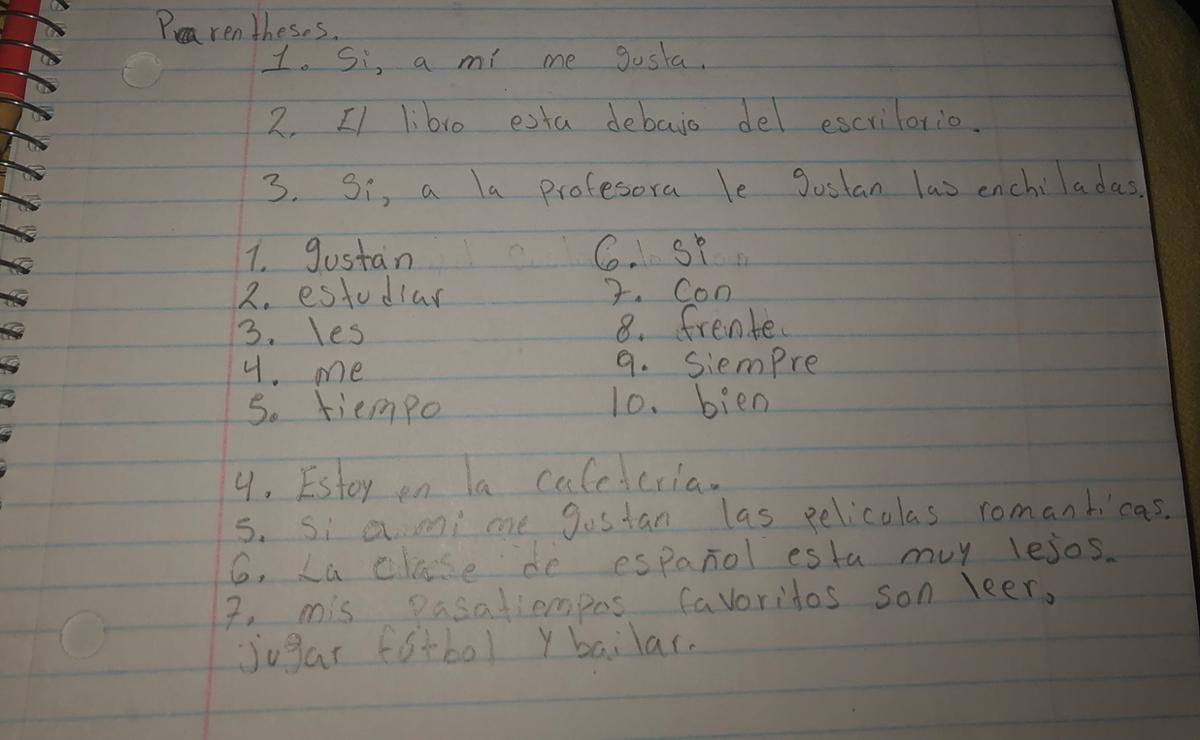 Parentheses.
1. Si, a mí me gusta.
2. El libro esta debajo del escritorio.
3. Si, a la profesora le gustan las enchiladas.
1. gustan 6. si
2. estudiar 7. con
3. les 8. frente.
4. me 9. siempre
5. tiempo 10. bien
4. Estoy en la cafetería.
5. Si a mi me gustan las peliculas romanticas.
6. La clase de español esta muy lejos.
7. mis pasatiempos favoritos son leer,
jugar fútbol y bailar.